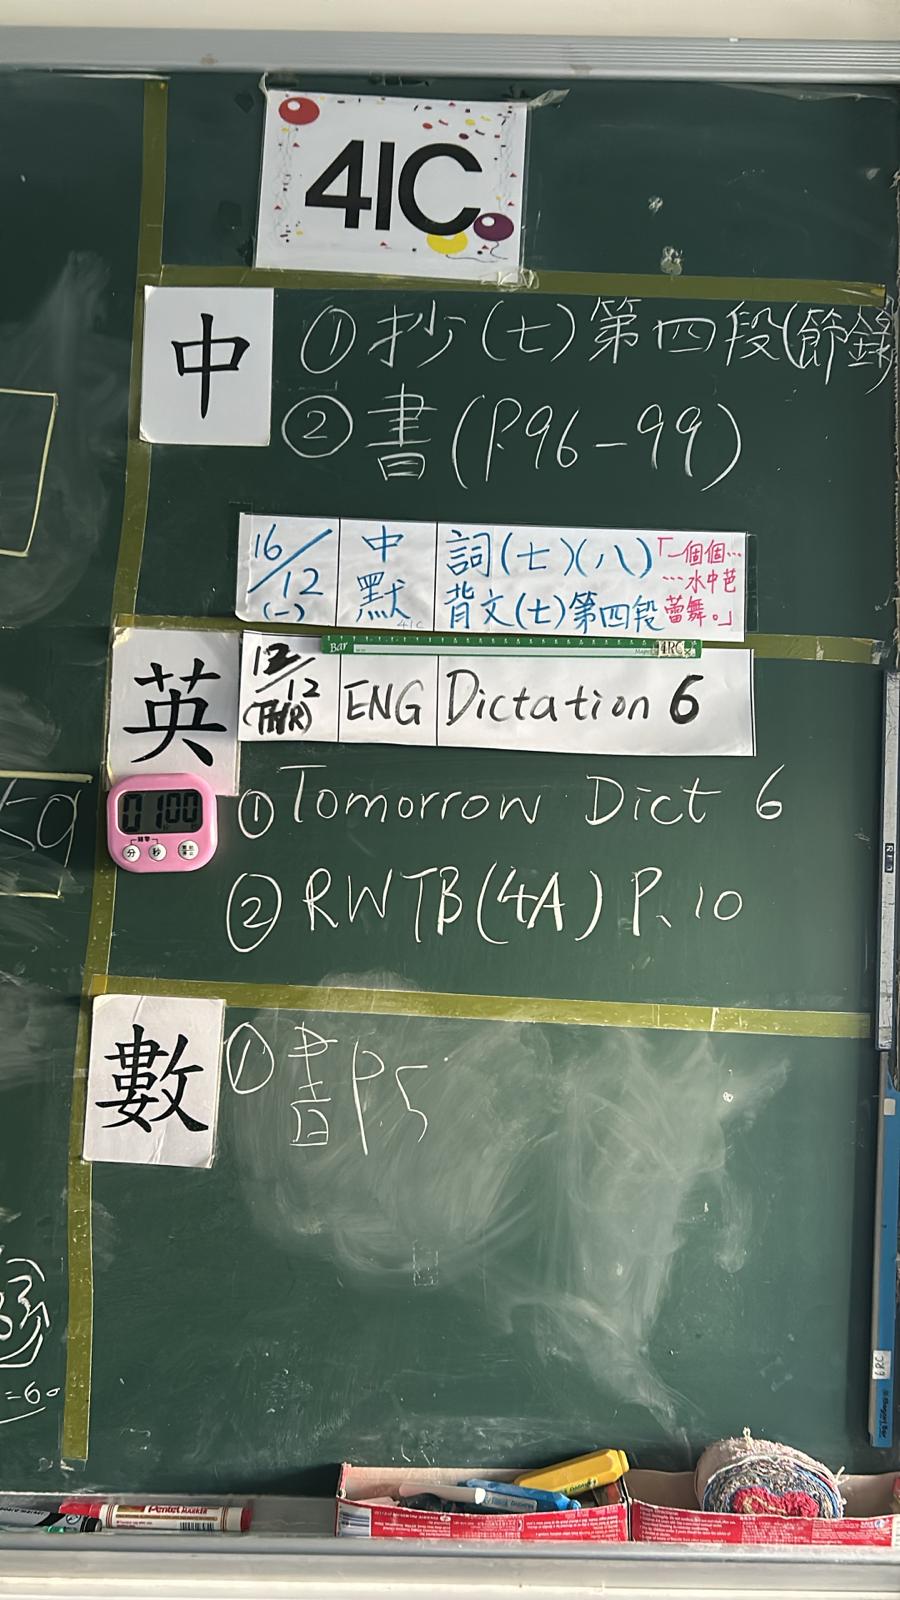 41C
中
① 抄(七)第四段(節錄
② 書(P.96-99)
16/12 (一) 中默 詞(七)(八) 背文(七)第四段 「一個個…
…水中芭
蕾舞。」
41C
Bar 4RC
英
12/12 (THR) ENG Dictation 6
01 00
分 秒
① Tomorrow Dict 6
② RW TB(4A) P.10
數
① 書P.5
=60
6RC
Pentel MARKER